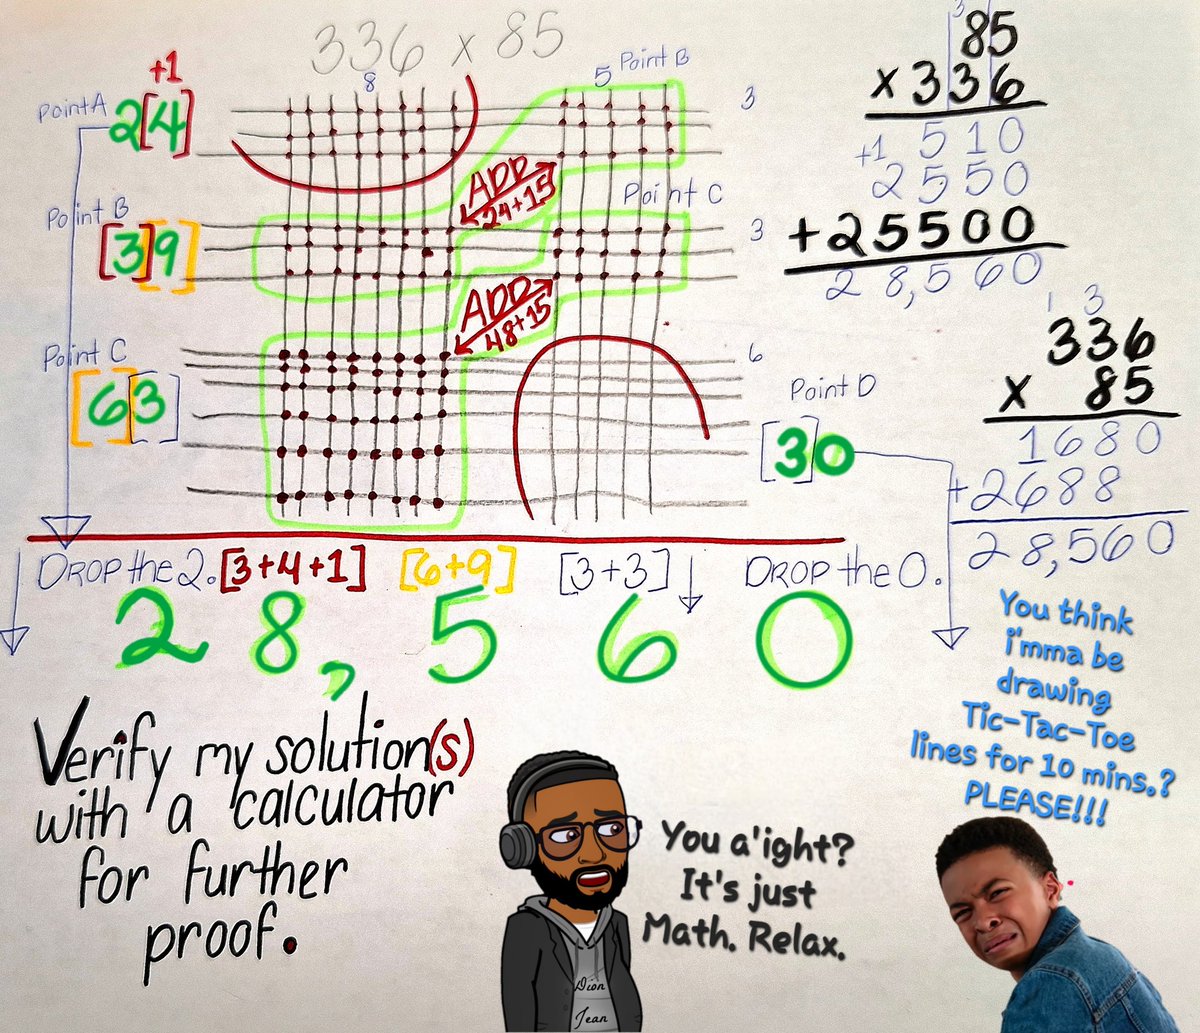 336 x 85
+1
8
5
Point B
Point A
2[4]
3
ADD
24+15
Point B
[3][9]
Point C
3
ADD
48+15
Point C
[6][3]
6
Point D
[3]0
DROP the 2. [3+4+1] [6+9] [3+3] DROP the 0.
28,560
3
85
x336
510
+1
2550
+25500
28,560
1 3
336
x 85
1680
+2688
28,560
You think
i'mma be
drawing
Tic-Tac-Toe
lines for 10 mins.?
PLEASE!!!
Verify my solution(s)
with a calculator
for further
proof.
You a'ight?
It's just
Math. Relax.
Dion
Jean